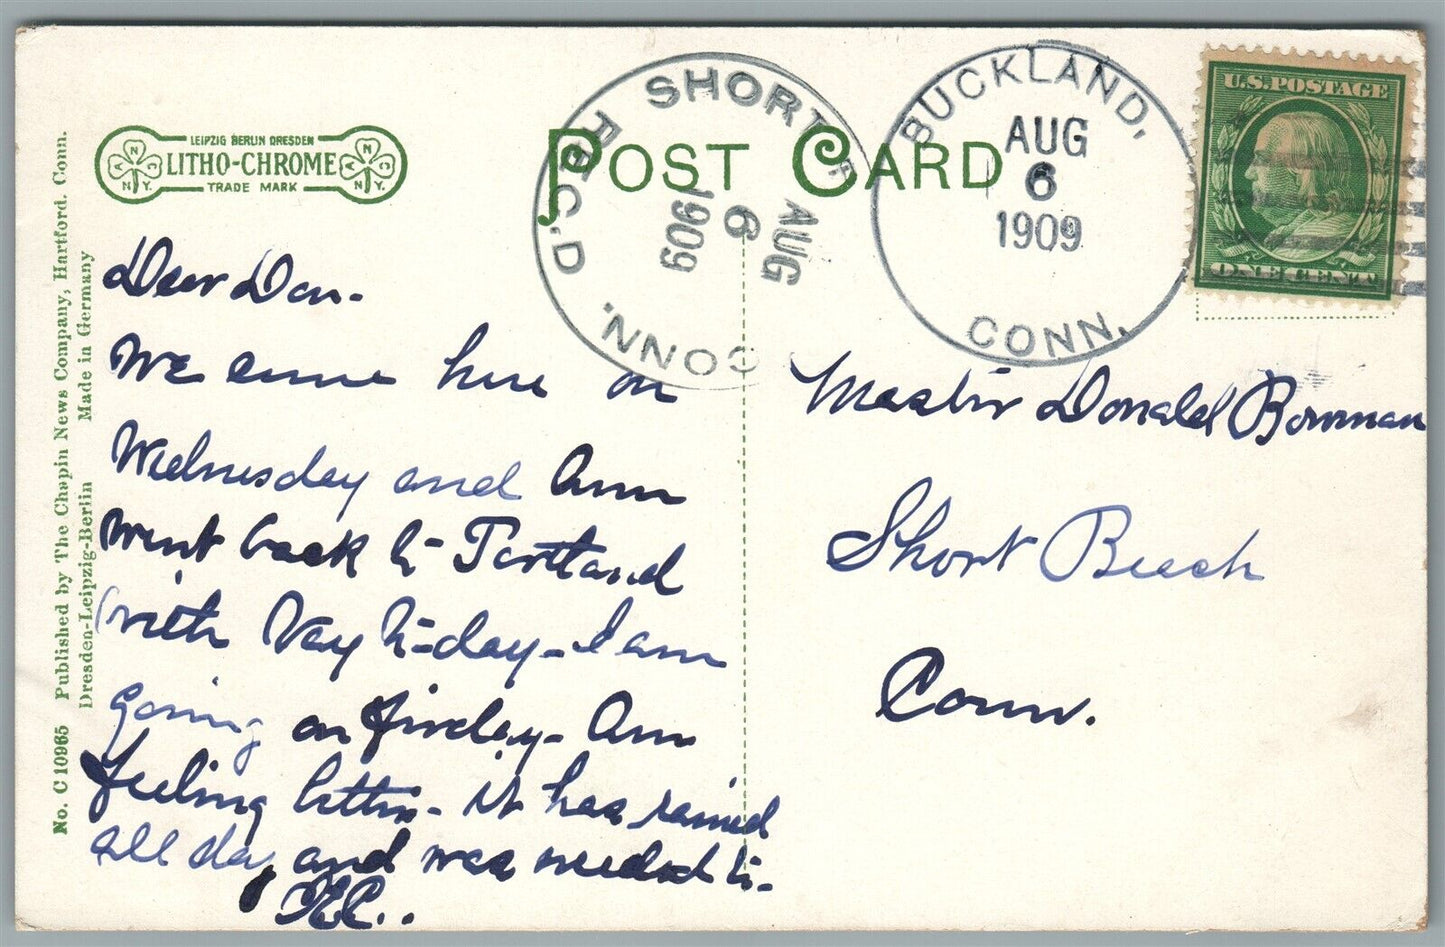 LEIPZIG BERLIN DRESDEN
LITHO-CHROME
TRADE MARK
A N C
N.Y.
A N C
N.Y.
POST CARD
SHORT
REC'D
AUG
6
1909
CONN.
BUCKLAND,
AUG
6
1909
CONN.
U.S. POSTAGE
ONE CENT
No. C 10965 Published by The Chapin News Company, Hartford. Conn.
Dresden-Leipzig-Berlin Made in Germany
Dear Don-
We came here on
Wednesday and Am
went back to Portland
with Ray to-day- I am
going on Friday- Am
feeling better- it has rained
all day, and was needed to-
Master Donald Bowman
Short Beach
Conn.